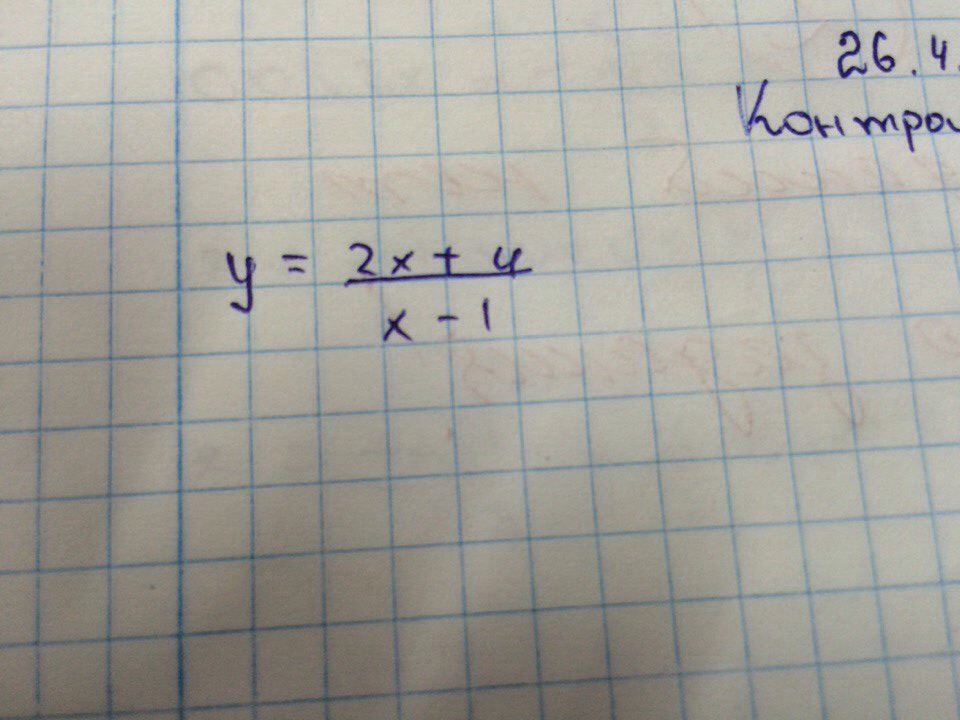 26.4.
Контрол
y = \frac{2x + 4}{x - 1}